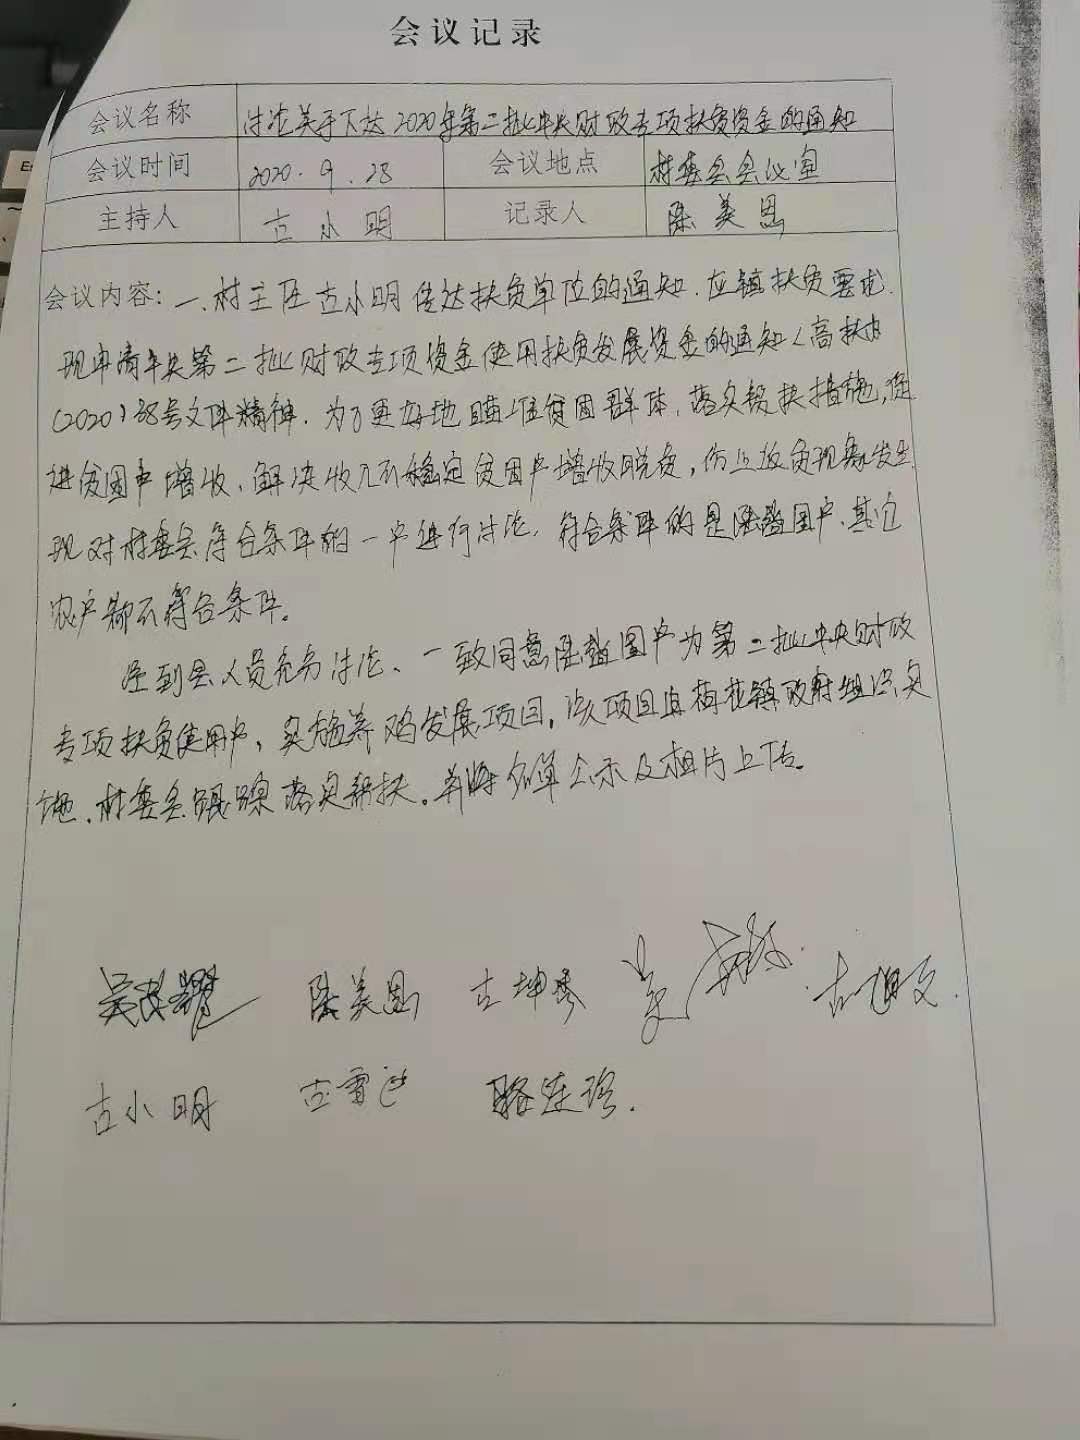 会议记录
会议名称 讨论关于下达2020年第二批中央财政专项扶贫资金的通知
会议时间 2020.9.28 会议地点 村委会会议室
主持人 古小明 记录人 陈美恩
会议内容：一、村主任古小明传达扶贫单位的通知.应镇扶贫要求.
现申请中央第二批财政专项资金使用扶贫发展资金的通知〈高扶办
(2020)38号文件精神.为了更好地瞄准贫困群体,落实帮扶措施,促
进贫困户增收、解决收入不稳定贫困户增收脱贫,防止返贫现象发生.
现对村委会符合条件的一户进行讨论,符合条件的是陈 国户.其它
农户都不符合条件。
经到会人员充分讨论、一致同意陈 国户为第二批中央财政
专项扶贫使用户,实施养鸡发展项目,该项目由梅花镇政府组织实
施、村委会跟踪落实帮扶。并将名单公示及相片上传。
陈美恩 古坤秀 古旭文.
古小明 骆连珍.